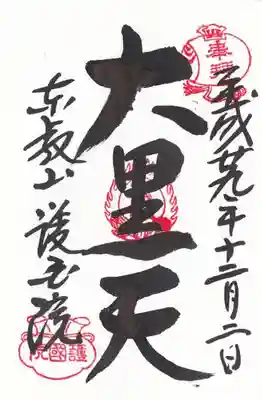 平成廿九年十二月二日
大黒天
東叡山 護国院
護國院